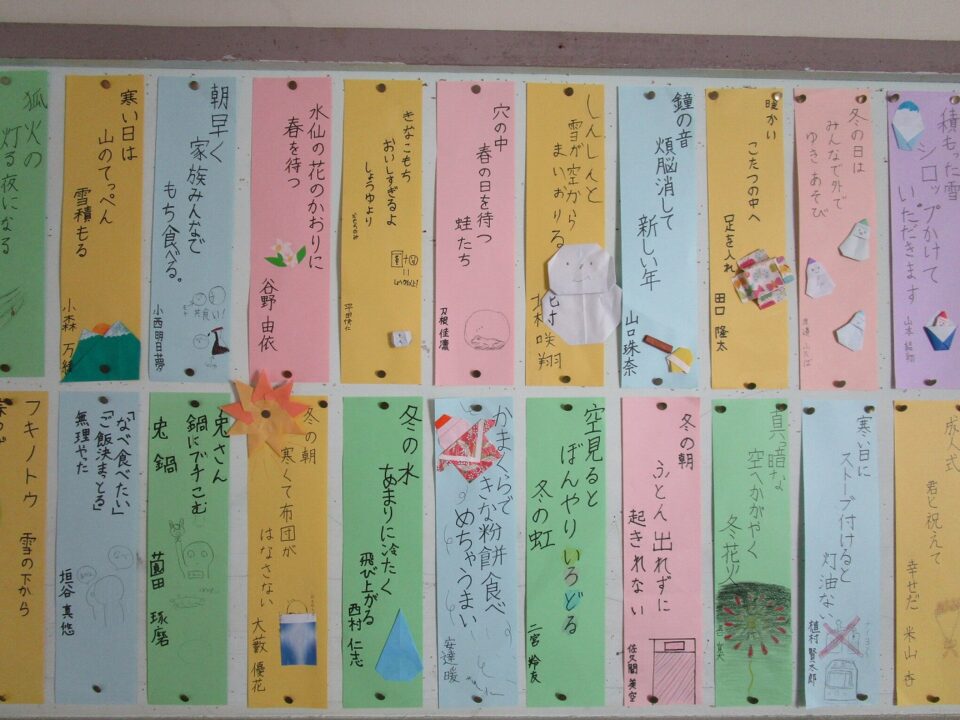 積もった雪
シロップかけて
いただきます
山本
冬の日は
みんなで外で
ゆきあそび
暖かい
こたつの中へ
足を入れ
田口 隆太
鐘の音
煩悩消して
新しい年
山口珠奈
しんしんと
雪が空から
まいおりる
咲翔
穴の中
春の日を待つ
蛙たち
刀根 佳凛
きなこもち
おいしすぎるよ
しょうゆより
水仙の花のかおりに
春を待つ
谷野 由依
朝早く
家族みんなで
もち食べる。
共食い!
小西 明日夢
寒い日は
山のてっぺん
雪積もる
小森 万
狐火の
灯る夜になる
成人式
君と祝えて
幸せだ
米山 杏
寒い日に
ストーブ付けると
灯油な
植村 賢太郎
真っ暗な
空へかがやく
冬花火
冬の朝
ふとん出れずに
起きれない
佐久間 美空
空見ると
ぼんやりいろどる
冬の虹
二宮 怜友
かまくらで
きな粉餅食べ
めちゃうまい
安達 暖
冬の水
あまりに冷たく
飛び上がる
西村 仁志
冬の朝
寒くて布団が
はなさない
大藪 優花
兎さん
鍋にブチこむ
兎鍋
薗田 琢磨
「なべ食べたい」
「ご飯決まっとる」
無理やった
垣谷 真悠
フキノトウ
雪の下から